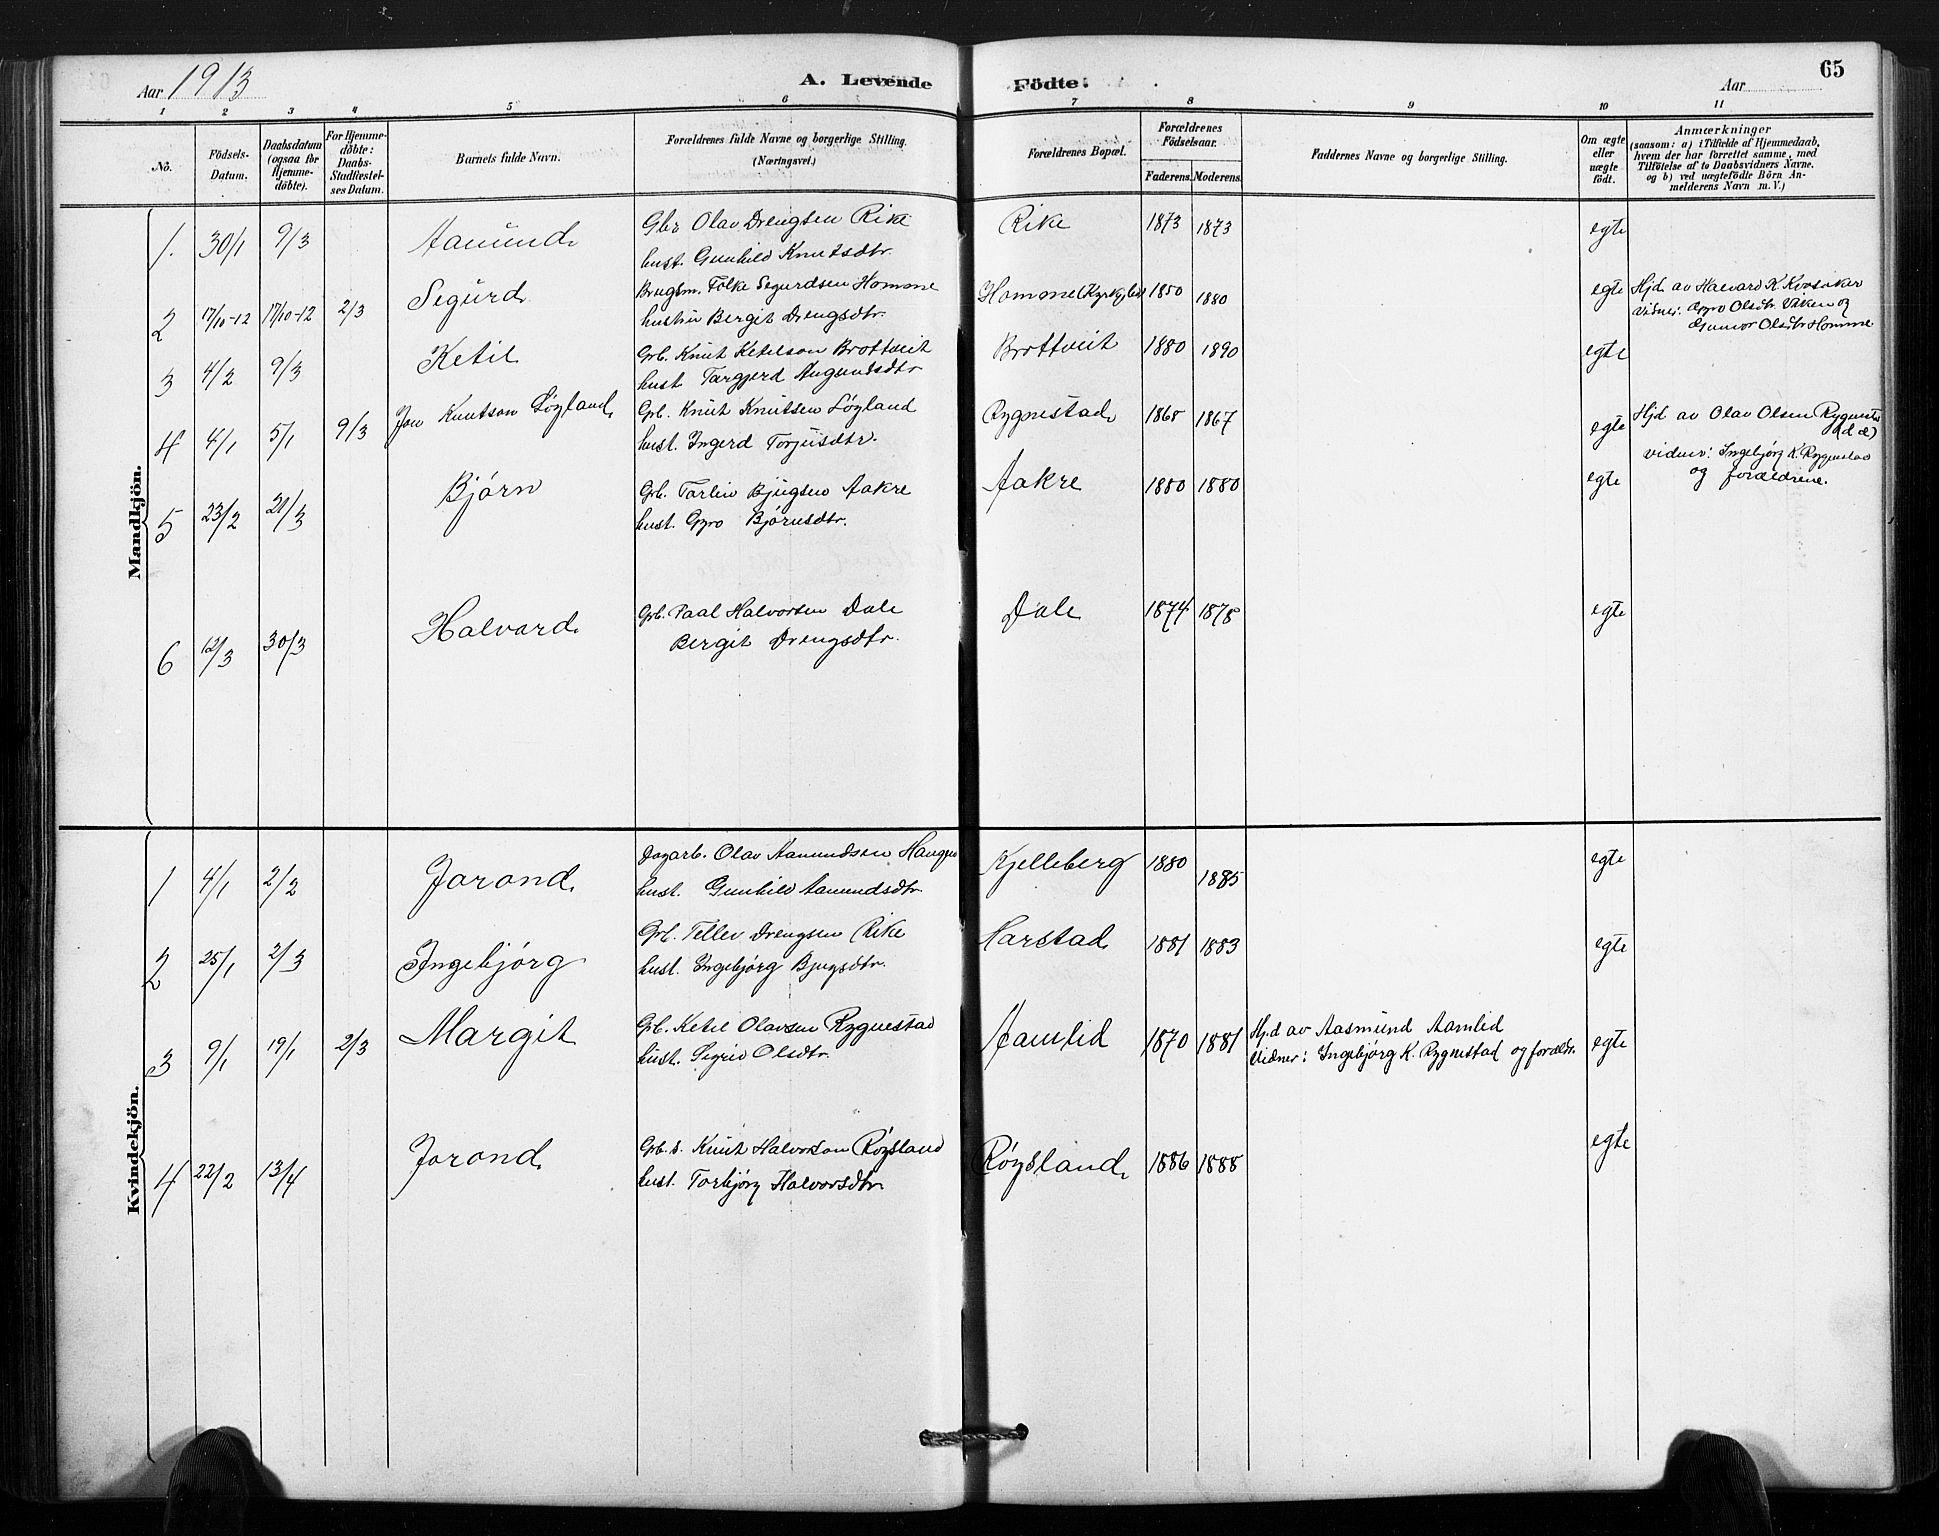 Aar 1913
A. Levende
Födte.
Aar
65
1 2 3 4 5 6 7 8 9 10 11
No.
Födsels-Datum.
Daabsdatum (ogsaa for Hjemme-döbte).
For Hjemme-döbte: Daabs-Stadfæstel-ses Datum.
Barnets fulde Navn.
Forældrenes fulde Navne og borgerlige Stilling. (Næringsvei.)
Forældrenes Bopæl.
Forældrenes Födselsaar.
Faderens. Moderens.
Faddernes Navne og borgerlige Stilling.
Om ægte eller uægte født.
Anmærkninger
(saasom: a) i Tilfælde af Hjemmedaab, hvem der har forrettet samme, med Tilföielse af to Daabsvidners Navne. og b) ved uægtefödte Börn An-melderens Navn m. V.)
Mandkjön.
1. 30/1 9/3 Aamund Gbr Olav Drengsen Rike Rike 1873 1873 egte
hust. Gunhild Knutsdtr.
2 17/10-12 17/10-12 2/3 Segurd Brugsm. Folke Segurdsen Homme Homme 1850 1880 egte Hjd av Havard K
hustru Bergit Drengsdtr. vidner: Gyro Olsdtr. Viken og
Gunvor Olsdtr Homme
3 4/2 9/3 Ketil Grb. Knut Ketelson Brottveit Brottveit 1880 1890 egte
hust. Targjerd Augundsdtr
4 4/1 5/1 9/3 Jon Knutson Løyland Grb. Knut Knutsen Løyland Rygnestad 1865 1867 egte Hjd av Olav Olsen
hust. Ingerd Torjusdtr. vidner: Ingebjørg K. Rygnestad
og forældrene.
5 23/2 21/3 Bjørn Grb. Tarleiv Bjugsen Aakre Aakre 1880 1880 egte
hust. Gyro Bjørnsdtr.
6 12/3 30/3 Halvard Grb. Paal Halvorsen Dale Dale 1874 1878 egte
Bergit Drengsdtr.
Kvindekjön.
1 4/1 2/2 Jorond Dagarb. Olav Aamundsen Haugen Kjelleberg 1880 1885 egte
hust. Gunhild Aamundsdtr
2 25/1 2/3 Ingebjørg Grb. Tellev Drengsen Rike Harstad 1881 1883 egte
hust. Ingebjørg Bjugsdtr.
3 9/1 19/1 2/3 Margit Grb. Ketil Olavsen Rygnestad Aamlid 1870 1881 Hj.d av Aasmund Aamlid egte
hust. Sigrid Olsdtr. Vidner: Ingebjørg K. Rygnestad og forældr.
4 22/2 13/4 Jorond Grb.s. Knut Halvorson Røysland Røysland 1886 1888 egte
hust. Torbjørg Halvorsdtr